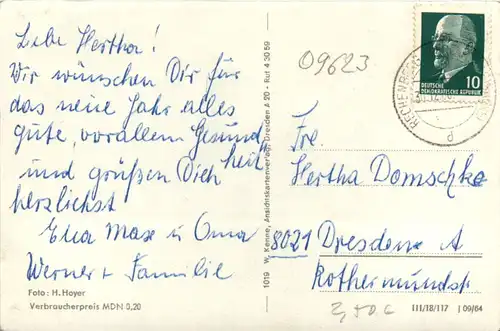 Liebe Hertha!
Wir wünschen Dir für
das neue Jahr alles
gute, vorallem Gesund
heit
und grüßen Dich
herzlichst
Max u Oma
Werner + Familie
Foto: H. Hoyer
Verbraucherpreis MDN 0,20
1019 W. Kenne, Ansichtskartenverlag, Dresden A 20 - Ruf 4 30 59
09623
10
DEUTSCHE
DEMOKRATISCHE REPUBLIK
d
Fre.
Hertha Domschke
8021 Dresden A
Rothermundstr
III/18/117 J 09/64